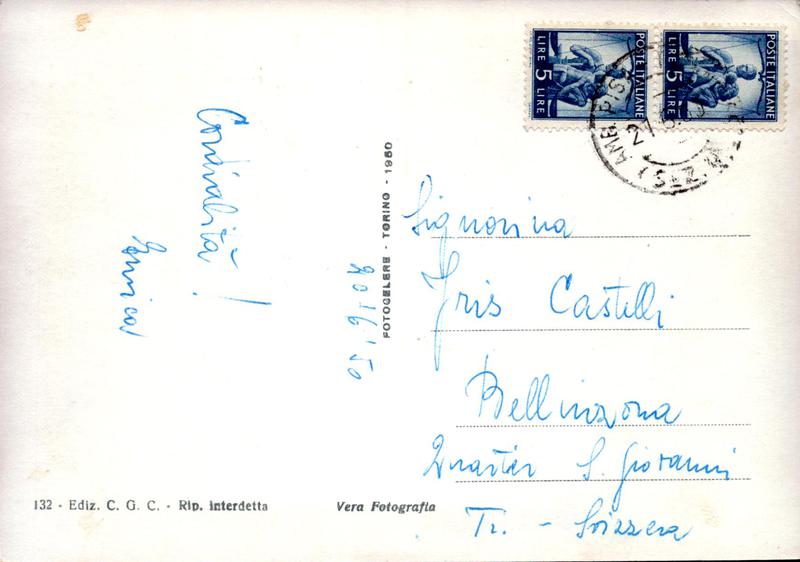 POSTE ITALIANE
LIRE 5 LIRE
POSTE ITALIANE
LIRE 5 LIRE
AMB. PISA
Cordialità!
Enrica
FOTOCELERE - TORINO - 1950
20/6/'50
Signorina
Iris Castelli
Bellinzona
Quartier S. Giovanni
Tr. - Svizzera
132 - Ediz. C. G. C. - Rip. interdetta
Vera Fotografia